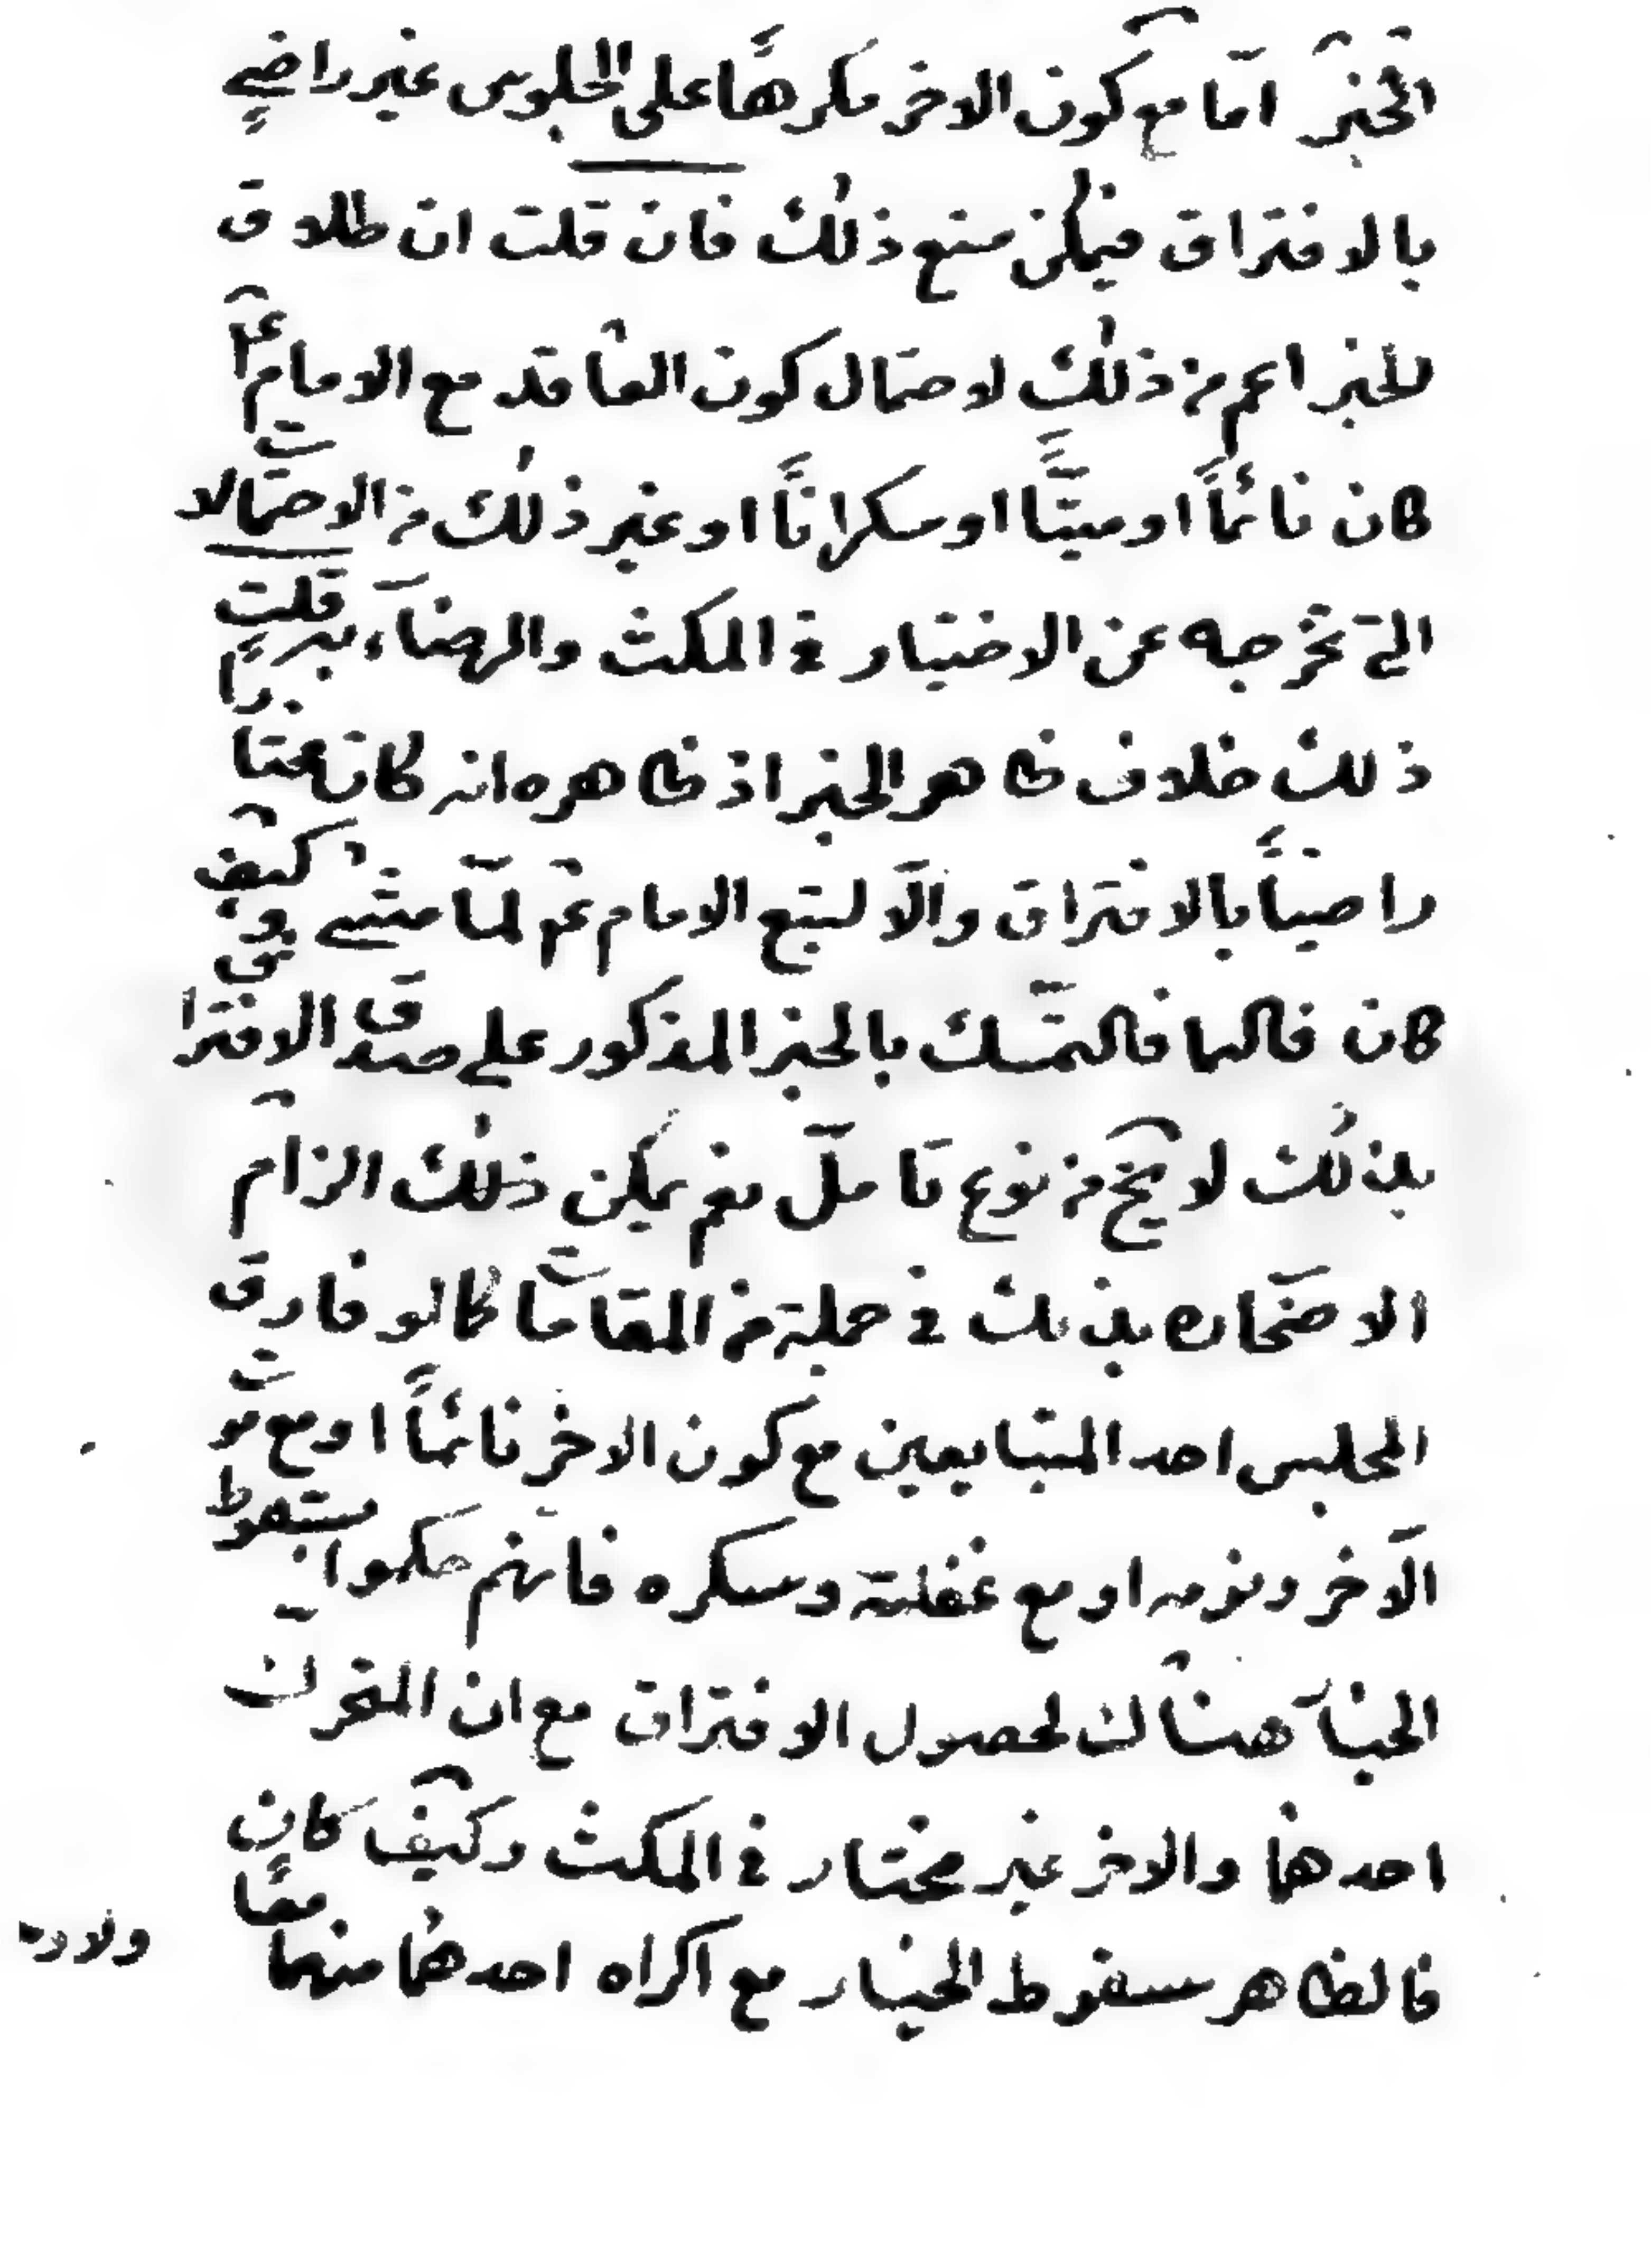 الخبر امّا مع كون الاخر مكرهًا على الجلوس غير راضٍي
بالافتراق فيمكن منع ذلك فان قلت ان طلاق
للخبر اعم من ذلك لاحتمال كون العاقد مع الامام عم
كان نائمًا او ميتًا او سكرانًا او غير ذلك من الاحتمالات
التي تخرجه عن الاختيار في المكث والرضاء به قلت
ذلك خلاف ظاهر الخبر اذ ظاهره انه كان مختارًا
راضيًا بالافتراق والّا لتبع الامام عم لمّا مشى وكيف
كان فالتمسك بالخبر المذكور على صدق الافتراق
بذلك لا يخ من نوع تامل نعم يمكن ذلك الزام
الاصحاب بذلك في جملة من المقامات كما لو فارق
المجلس احد المتبايعين مع كون الاخر نائمًا او مع موت
الآخر ونومه او مع غفلته وسكره فانهم حكموا بسقوط
الخيار هناك لحصول الافتراق مع ان المتحرك
احدهما والاخر غير مختار في المكث وكيف كان
فالظاهر سقوط الخيار مع اكراه احدهما منهما معًا